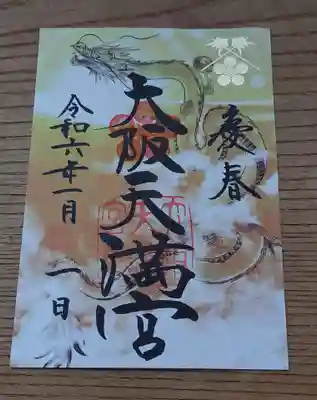 慶春
大阪天満宮
令和六年一月
一日